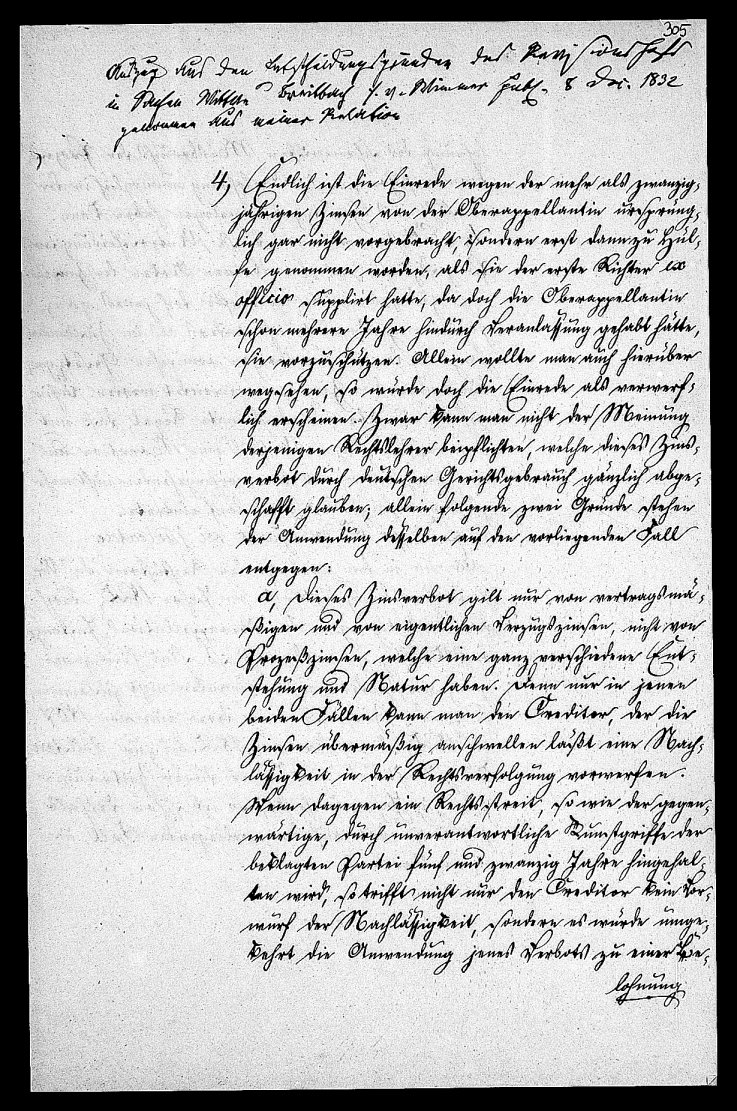 305
Auszug aus den Entscheidungsgründen des Revisionshofs
in Sachen Wittwe Breitbach g. v. Wimmer publ. 8 Dec. 1832
genommen aus meiner Relation
4, Endlich ist die Einrede wegen der mehr als zwanzig-
jährigen Zinsen von der Oberappellantin ursprüng-
lich gar nicht vorgebracht, sondern erst dann zu Hül-
fe genommen worden, als sie der erste Richter ex
officio supplirt hatte, da doch die Oberappellantin
schon mehrere Jahre hindurch Veranlassung gehabt hätte,
sie vorzuschützen. Allein wollte man auch hierüber
wegsehen, so würde doch die Einrede als verwerf-
lich erscheinen. Zwar kann man nicht der Meinung
derjenigen Rechtslehrer beipflichten, welche dieses Zins-
verbot durch deutschen Gerichtsgebrauch gänzlich abge-
schafft glauben; allein folgende zwei Gründe stehen
der Anwendung desselben auf den vorliegenden Fall
entgegen:
a, Dieses Zinsverbot gilt nur von vertragsmä-
ßigen und von eigentlichen Verzugszinsen, nicht von
Prozeßzinsen, welche eine ganz verschiedene Ent-
stehung und Natur haben. Denn nur in jenen
beiden Fällen kann man den Creditor, der die
Zinsen übermäßig anschwellen läßt eine Nach-
lässigkeit in der Rechtsverfolgung vorwerfen.
Wenn dagegen ein Rechtsstreit, so wie der gegen-
wärtige, durch unverantwortliche Kunstgriffe der
beklagten Partei fünf und zwanzig Jahre hingehal-
ten wird, so trifft nicht nur den Creditor kein Vor-
wurf der Nachlässigkeit, sondern es würde umge-
kehrt die Anwendung jenes Verbots zu einer Be-
lohnung